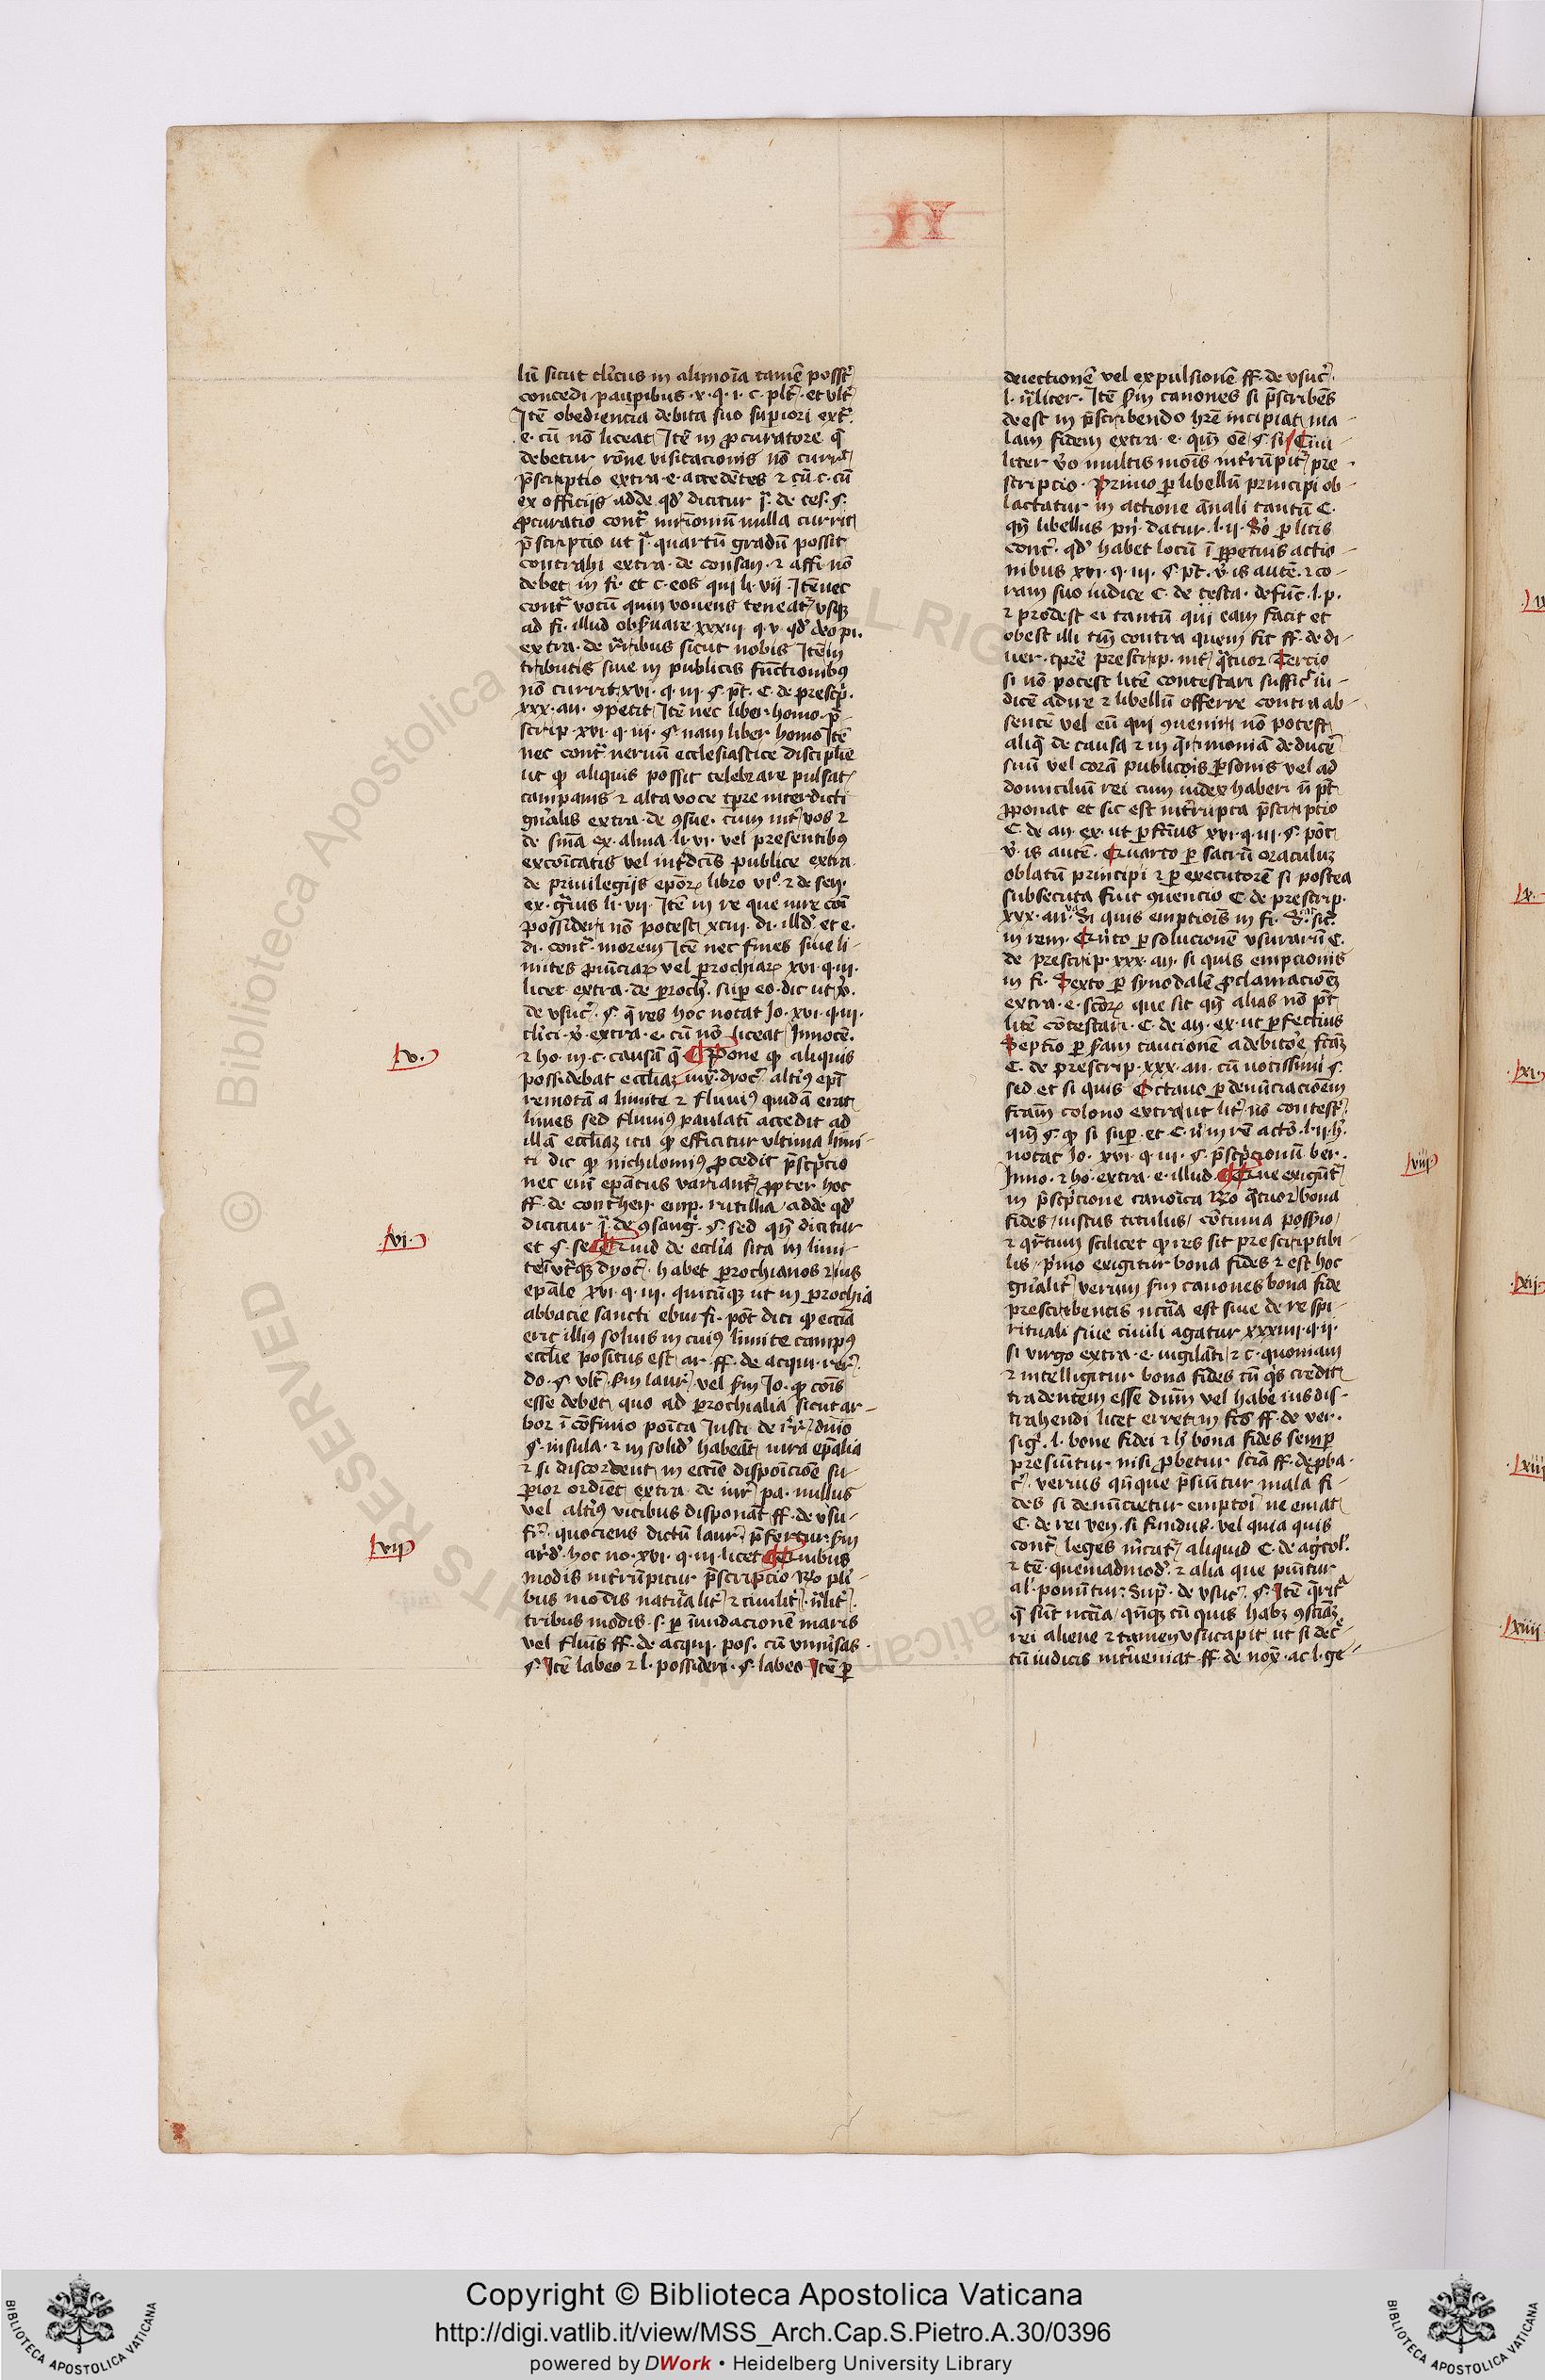 II
lū sicut cl'icus in alimoīa tamē posset᷑
concedi paupibus · x · q · i · c · plt᷑ · et vlt᷑
Itē obediencia debita suo supiori ext᷑
· e · cū nō liceat Itē in ꝓcuratore q̄
debetur rōne visitacionis nō currit
p̄scriptio extra · e · accedētes ⁊ cū · c · cū
ex officijs adde qd' dicitur j᷑ de ces · §
ꝓcuratio cont᷑ mr̄imoniū nulla currit
p̄scriptio ut j᷑ quartū gradū possit
contrahi extra · de consan · ⁊ affi nō
debet in fi · et c · eos qui li · vii · Itē nec
cont᷑ votū quin vovens teneat᷑ usq̨
ad fi · illud obs̄uare xxxiii q · v · qd' deo pi ·
extra · de r̄ibus sicut nobis Itē in
tributis siue in publicis fūctionibꝰ
nō currit xvi · q · iii · § · pt᷑ · C · de prescp̄ ·
xxx · an · ꝯpetit Itē nec liber homo p̄
scrip · xvi · q · iii · § · nam liber homo Itē
nec cont᷑ neruū ecclesiastice disciplīe
ut ꝙ aliquis possit celebrare pulsat
campanis ⁊ alta voce tp̄re interdicti
gn̄alis extra · de ꝯsue · cum int᷑ vos ⁊
de sn̄ia ex · alma · li · vi · vel presentibꝰ
excoīcatis vel int᷑dcīs publice extra
de priuilegijs epōꝝ libro viº · ⁊ de sen ·
ex · gr̄ius li · vii · Itē in re que iure coī
possideri nō potest xciii · di · illd' · et e ·
di · cont᷑ · morem Itē nec fines siue li-
mites ꝓuīciaꝝ vel ꝑrochiaꝝ xvi · q · iii ·
licet extra · de ꝑroch᷑ · sup eo · dic ut s᷑ ·
de vsuc᷑ · § · q̄ res hoc notat Jo · xvi · q · iii ·
cl'ici · v᷑ · extra · e · cū nō liceat Innocē ·
·v·
⁊ ho · in · c · causā q̄ Pone ꝙ aliquis
possidebat eccl'iaz iux᷑ · dyoc᷑ · alt'iꝰ epī
remotā a limite ⁊ fluuiꝰ quidā erat
limes sed fluuiꝰ paulatī accedit ad
illā eccl'iaz ita ꝙ efficitur vltima limi-
ti dic ꝙ nichilomiꝰ ꝓcedit p̄scp̄tio
nec eni epātus variant᷑ ꝓpter hoc
ff · de cont᷑hen · emp · rutilia · adde qd'
dicitur j᷑ · de ꝯsang᷑ · § · sed qn̄ dicitur
·vi·
et § · se Quid de eccl'ia sita in limi-
te utiꝰq̨ dyoc᷑ · habet ꝑrochianos ⁊ ius
epāle xvi · q · iii · quicūq̨ ut in ꝑrochia
abbacie sancti ebur fi · pōt dici ꝙ eccīa
erit illiꝰ solius in cuius limite campꝰ
eccl'ie positus est ar · ff · de acqui · rer᷑ ·
do · § · vlt᷑ · s̄m laur᷑ · vel s̄m Jo · ꝙ coīs
esse debet quo ad ꝑrochialia sicut ar-
bor ī cōfinio poīta Insti · de r᷑ · r᷑ · diuīo
§ · insula · ⁊ in solid' habeāt iura ep̄alia
⁊ si discordent in eccīe disposicōe su-
ꝑior ordīet extra · de iur᷑ · pa · nullus
vel alt'iꝰ vicibus disponāt ff · de vsu-
·vii
fr᷑ · quociens dictū laur᷑ · p̄fertur s̄m
ard' · hoc no · xvi · q · iii · licet Quibus
modis int'rūpitur p̄scriptio Rō pl'i-
bus modis natur̄alit᷑ ⁊ ciuilit᷑ · n̄lit᷑ ·
tribus modis · s · ꝑ īundacionē maris
vel fluīs ff · de acqui · pos · cū vniu'sas ·
§ · Itē labeo ⁊ l · possideri · § · labeo Itē ꝑ
deiectionē vel expulsionē ff · de vsuc᷑ ·
l · n̄liter · Itē s̄m canones si p̄scribēs
deest in p̄scribendo hr̄e incipiat ma-
lam fidem extra · e · qm̄ oē · § · si Ciui
liter v᷑o multis moīs int'rūpit᷑ pre-
scriptio · Primo ꝑ libellū principi ob-
lactatur in actione ānali tantū C ·
qn̄ libellus pn̄ · datur · l · ii · Sº ꝑ litis
cont᷑ · qd' habet locū ī ꝑpetuis actio-
nibus xvi · q · iii · § · pt᷑ · v᷑ · is autē · ⁊ co-
ram suo iudice C · de testa · defūc · l · p ·
⁊ prodest ei tantū qui eam facit et
obest illi tm̄ contra quem fit ff · de di-
uer · tp̄re prescrip · int᷑ q̄tuor Tercio
si nō potest litē contestari suffic᷑ iu-
dicē adire ⁊ libellū offerre contra ab-
sentē vel eū qui ꝯuenirī nō potest
aliq̄ de causa ⁊ in q̄rimoniā deducē
suū vel corā publicois ꝑsonis vel ad
domiciliū rei cum iudex haberi n̄ pt᷑
ꝓponat et sic est int'rupta p̄scriptio
C · de an · ex · ut ꝑfciūs xvi · q · iii · § · pōt
v᷑ · is autē · Quarto ꝑ sacrū oraculuz
oblatū principi ⁊ ꝑ executorē si postea
subsecuta fuit ꝯuencio C · de prescrip ·
xxx · an · Si quis emptiois in fi ·
in rem · Quīto ꝑ solucionē vsurarū C ·
de prescrip · xxx · an · si quis empcionis
in fi · Sexto ꝑ synodalē ꝓclamacionē
extra · e · scōꝝ que sit qn̄ alias nō pt᷑
litē cōtestari · C · de an · ex · ut ꝑfectius
Septīo ꝑ s̄am cautionē a debitoe fc̄az
C · de prescrip · xxx · an · cū notissimi §
sed et si quis Octauo ꝑ denūciacionem
fcām colono extra ut lit᷑ nō contest᷑ ·
qm̄ § · ꝙ si sup · et C · n̄ in rē actō · l · ii · h᷑ ·
notat Jo · xvi · q · iii · § · p̄scp̄cionū ber ·
·viij
Inno · ⁊ ho · extra · e · illud · Que exigūt᷑
in p̄scp̄cione canoīca Rō q̄tuor bona
fides iustus titulus cōtinua possio
⁊ qr̄tum scilicet ꝙ res sit prescriptibi-
lis · p'mo exigitur bona fides ⁊ est hoc
gn̄alit᷑ verum s̄m canones bona fide
prescribentis nccīa est siue de re spi-
rituali siue ciuili agatur xxxiiii · q · ii ·
si virgo extra · e · uigilāti · ⁊ c · quoniam
⁊ intelligitur bona fides cū q's credit
tradentem esse dnūm vel habe ius dis-
trahendi licet erret in fcō ff · de ver ·
sig᷑ · l · bone fidei ⁊ h᷑ bona fides semꝑ
presumitur nisi ꝓbetur scīa ff · de ꝓba ·
c᷑ · verius qn̄que p̄sumitur mala fi-
des si denūcietur emptoī ne emat
C · de rei ven · si fundus · vel quia quis
cont᷑ leges m'cat᷑ aliquid C · de agcol' ·
⁊ cē · quemadmod' · ⁊ alia que piuntur
al' ponūtur · Sup᷑ · de vsuc᷑ · § · Itē q̄rit᷑
q̄ sūt nccīa · qn̄q̨ cū quis habz ꝯsciāz
rei aliene ⁊ tamen vsucapit ut si dec᷑-
tū iudicis int'ueniat ff · de nox᷑ · ac l · ge-
Copyright © Biblioteca Apostolica Vaticana
http://digi.vatlib.it/view/MSS_Arch.Cap.S.Pietro.A.30/0396
powered by DWork • Heidelberg University Library
BIBLIOTECA APOSTOLICA VATICANA
BIBLIOTECA APOSTOLICA VATICANA